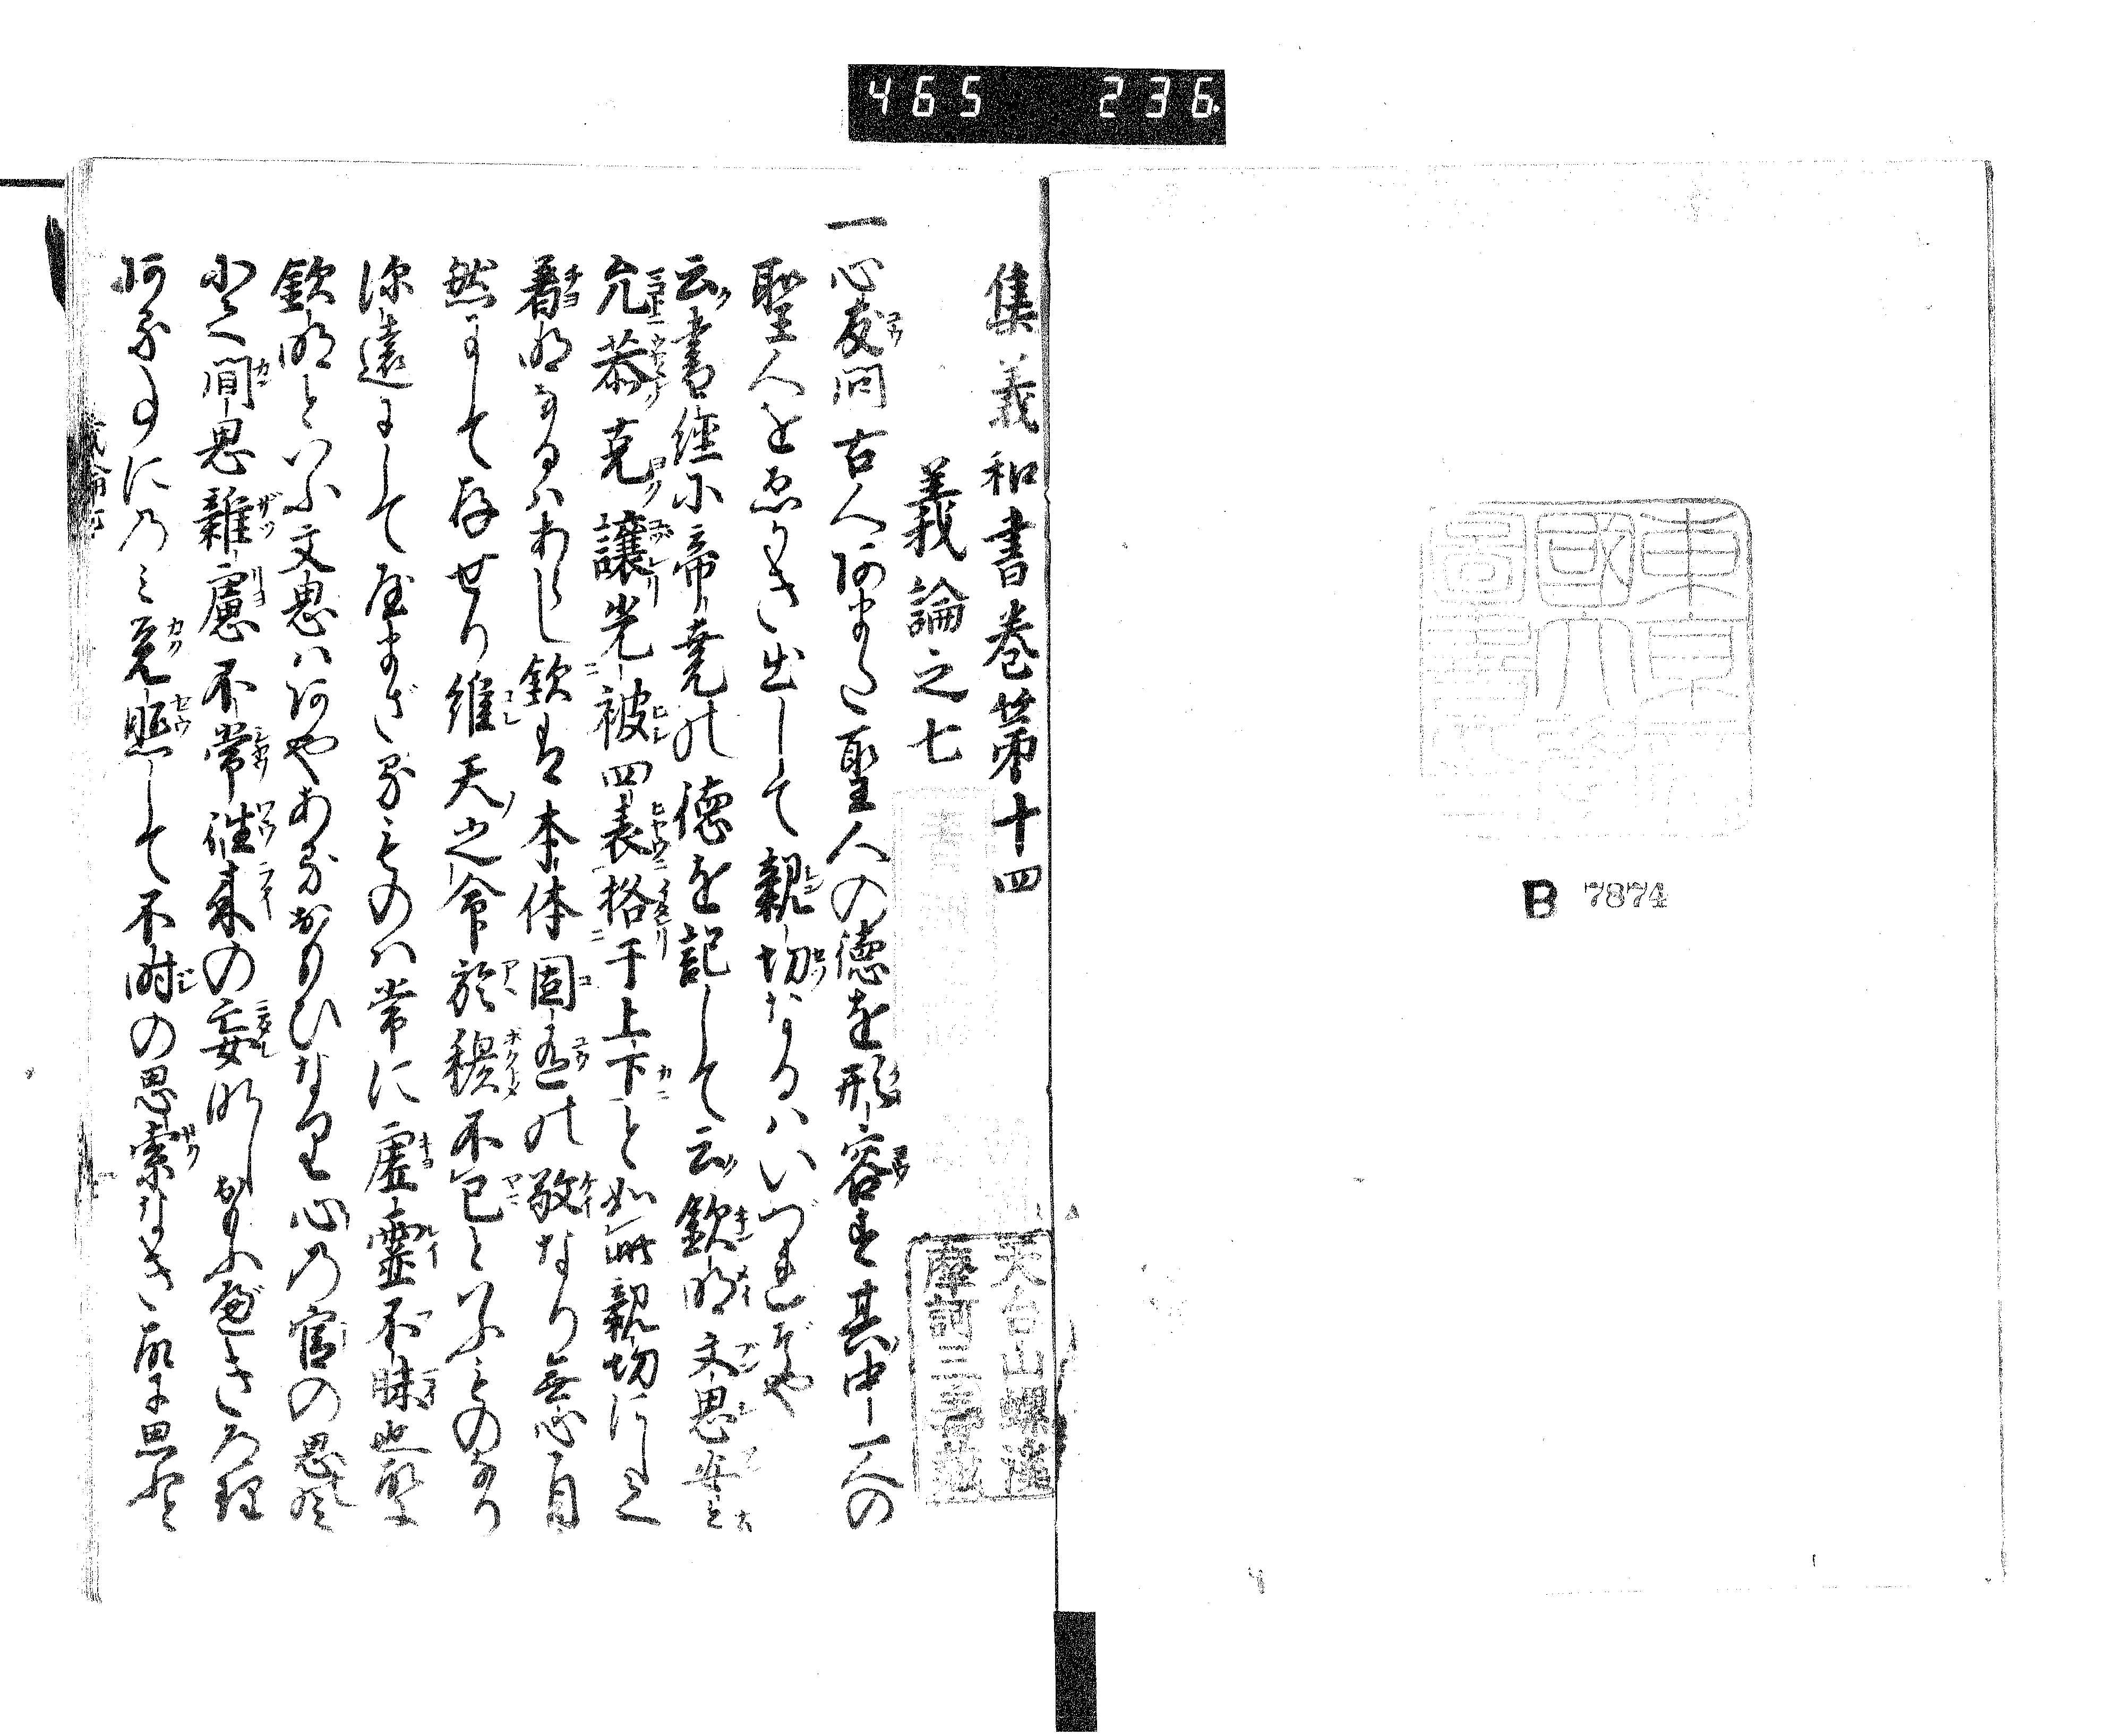 465 236
東京
帝國大學
圖書
B 7874
集義和書巻第十四
義論之七
天台山螺溪
摩訶三
一心友問古人あまた聖人の徳を形容す其中一人の
聖人をゑかき出して親切なるはいづれぞや
云書經に帝堯の徳を記して云欽明文思安々
允恭克讓光被四表格于上下と如此親切に
著明なるはあらし欽は本体固有の敬なり無心自
然にして存せり維天之命於穆不已といふものなり
深遠にしてやまざるものは常に虚靈不昧也故に
欽明といふ文思はあやあるおもひなり心の官の思
間思雜慮不常往來の妄
にのみ覺照して不時の思索なき